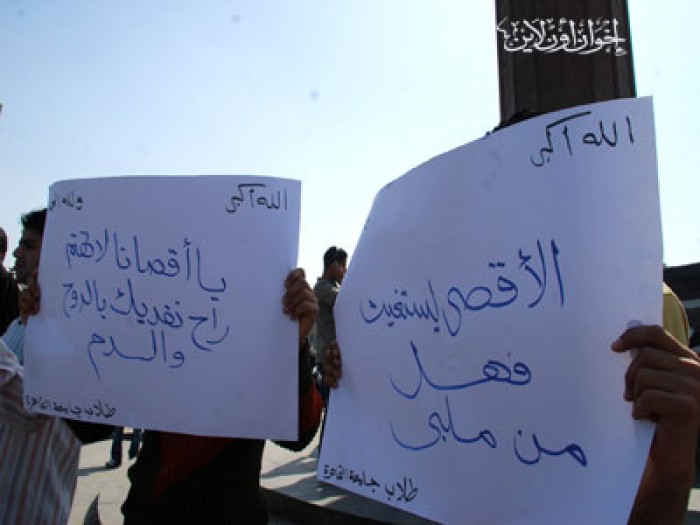 إخوان أون لاين
الله أكبر
الأقصى يستغيث
فهل
من ملبى
طلاب جامعة القاهرة
الله أكبر
ولله
يا أقصانا لا تهتم
راح نفديك بالروح
والدم
طلاب جامعة القاهرة